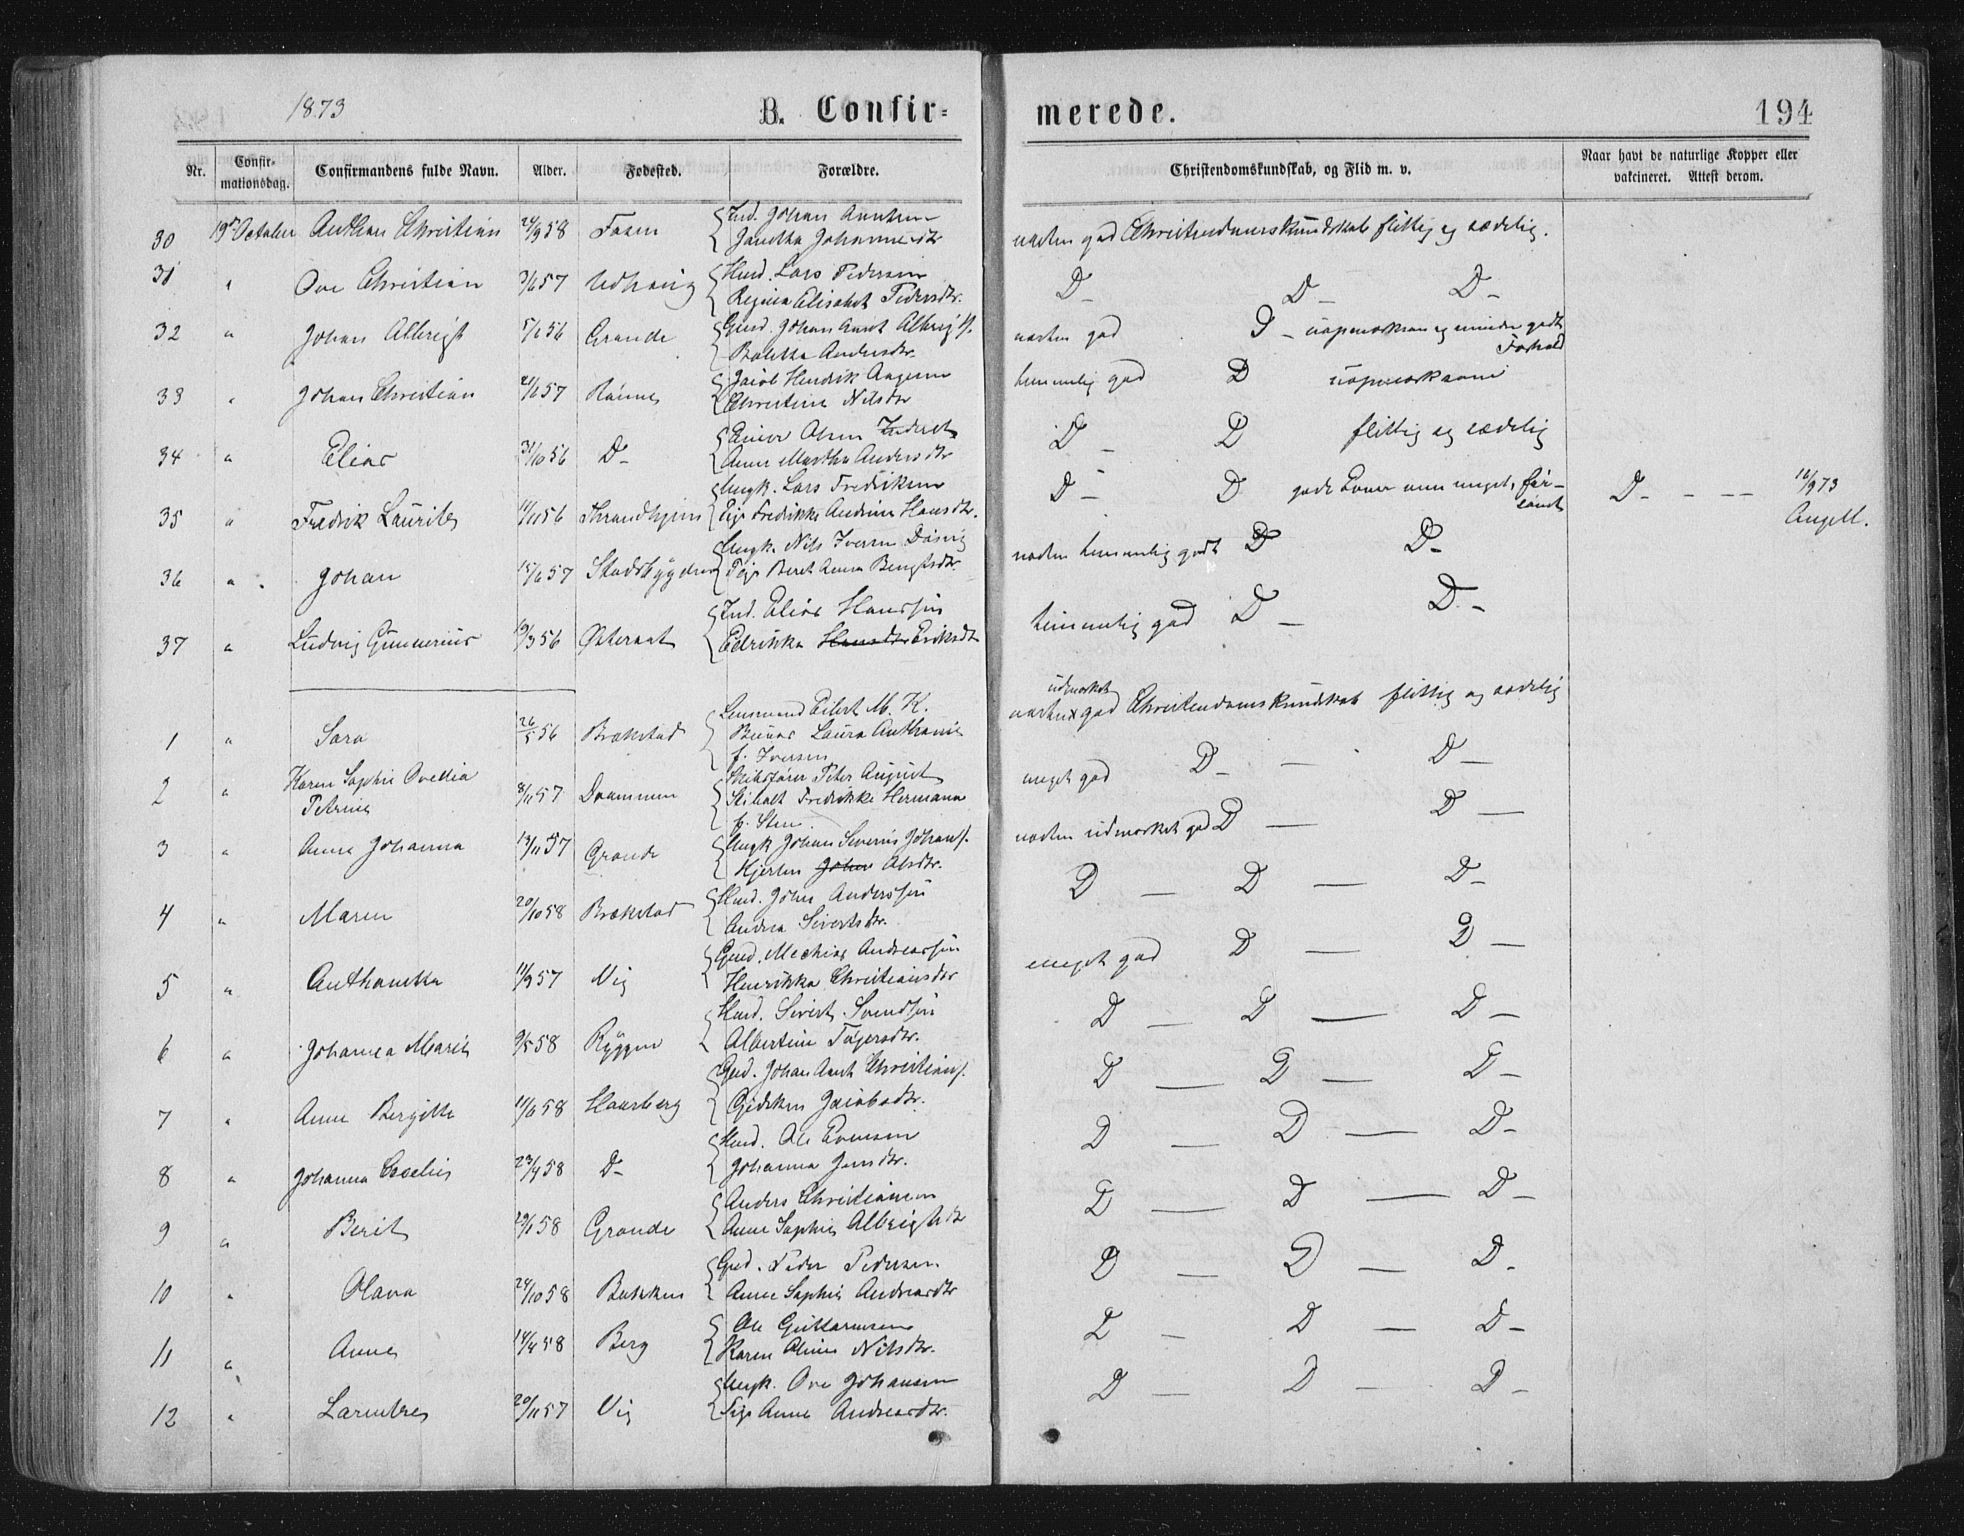 1873
B. Confir=
merede.
194
Nr.
Confir-
mationsdag.
Confirmandens fulde Navn.
Alder.
Fødested.
Forældre.
Christendomskundskab, og Flid m. v.
Naar havt de naturlige Kopper eller
vakcineret. Attest derom.
30 19de October Anthon Christian 24/9 58 Fosen Ind. Johan Arntsen
Johannesdtr
næsten god Christendomskundskab flittig og sædelig.
31 " Ove Christian 3/6 57 Udhaug Husd. Lars Pedersen
Regina Elisabet Pedersdtr.
D- D- D-
32 " Johan Albrigt 5/1 56 Grande Gusd. Johan Arnt Albrigts.
Andersdtr.
næsten god D- uopmærksom og mindre godt
Forhold
33 " Johan Christian 21/1 57 Rønne Jacob Hendrik Angersen
Christine Nilsdtr
temmelig god D uopmærksom
34 " Elias 31/10 56 D- Einer Olsen
Anne Martha Andersdtr
D- D flittig og sædelig
35 " Fredrik Laurits 11/11 56 Ungk. Lars Fredriksen
Pige Fredrikke Andrine Hansdtr.
D- D gode Evner men meget for-
sømt
D- - - - 16/9 73
Angell.
36 " Johan 15/6 57 Stadsbygden Ungk. Nils Iversen
Pige Beret Anna Bengtsdtr.
næsten temmelig godt D D-
37 " Ludvig Gunnerius 19/3 56 Østeraat Ind. Elias Hansen
Edrikka Hansdtr Eriksdtr
temmelig god D- D-
1 " Sara 26/5 56 Brækstad Lensmand Eilert M. K.
Laura Anthonie
f. Iversen
udmærket
næsten god Christendomskundskab flittig og sædelig
2 " Karen Sophie Ovedia
Petrine 8/11 57 Drammen Skibsfører Peter August
Fredrikke Hermana
f. Sten.
meget god D- - D-
3 " Anne Johanna 13/11 57 Grande Ungk Johan Severin Johans.
Hjerten Olsdtr.
næsten udmærket god D - D -
4 " Maren 20/10 58 Brækstad Husd. John Andersen
Andrea Sivertsdtr.
D - D - D-
5 " Anthonetta 11/9 57 Vig Gusd. Mechior Andreassen
Henrikka Christiansdtr
meget god D - D -
6 " Johanna Marie 9/5 58 Ryggen Husd. Sivert Svendsen
Albertine Tøgersdtr.
D - D - D-
7 " Anne Bergitte 11/6 58 Hausberg Gusd. Johan Arnt Christians.
Gidsken Jacobsdtr.
D - D - D-
8 " Johanna 23/4 58 D- Husd. Ole Evensen
Johanna Jensdtr.
D - D - D-
9 " Berit 29/1 58 Grande Anders Christiansen
Anne Sophie Albrigtsdtr
D - D - D-
10 " Olava 24/10 58 Bakken Gusd. Peder Pedersen.
Anne Sophie Andreasdtr
D - D - D-
11 " Anne 14/4 58 Berg Ole Guttormsen
Karen Oline Nilsdtr.
D - D - D-
12 " Larentze 20/11 57 Vig Ungk. Ove Johansen
Pige Anne Andreasdtr.
D - D - D-